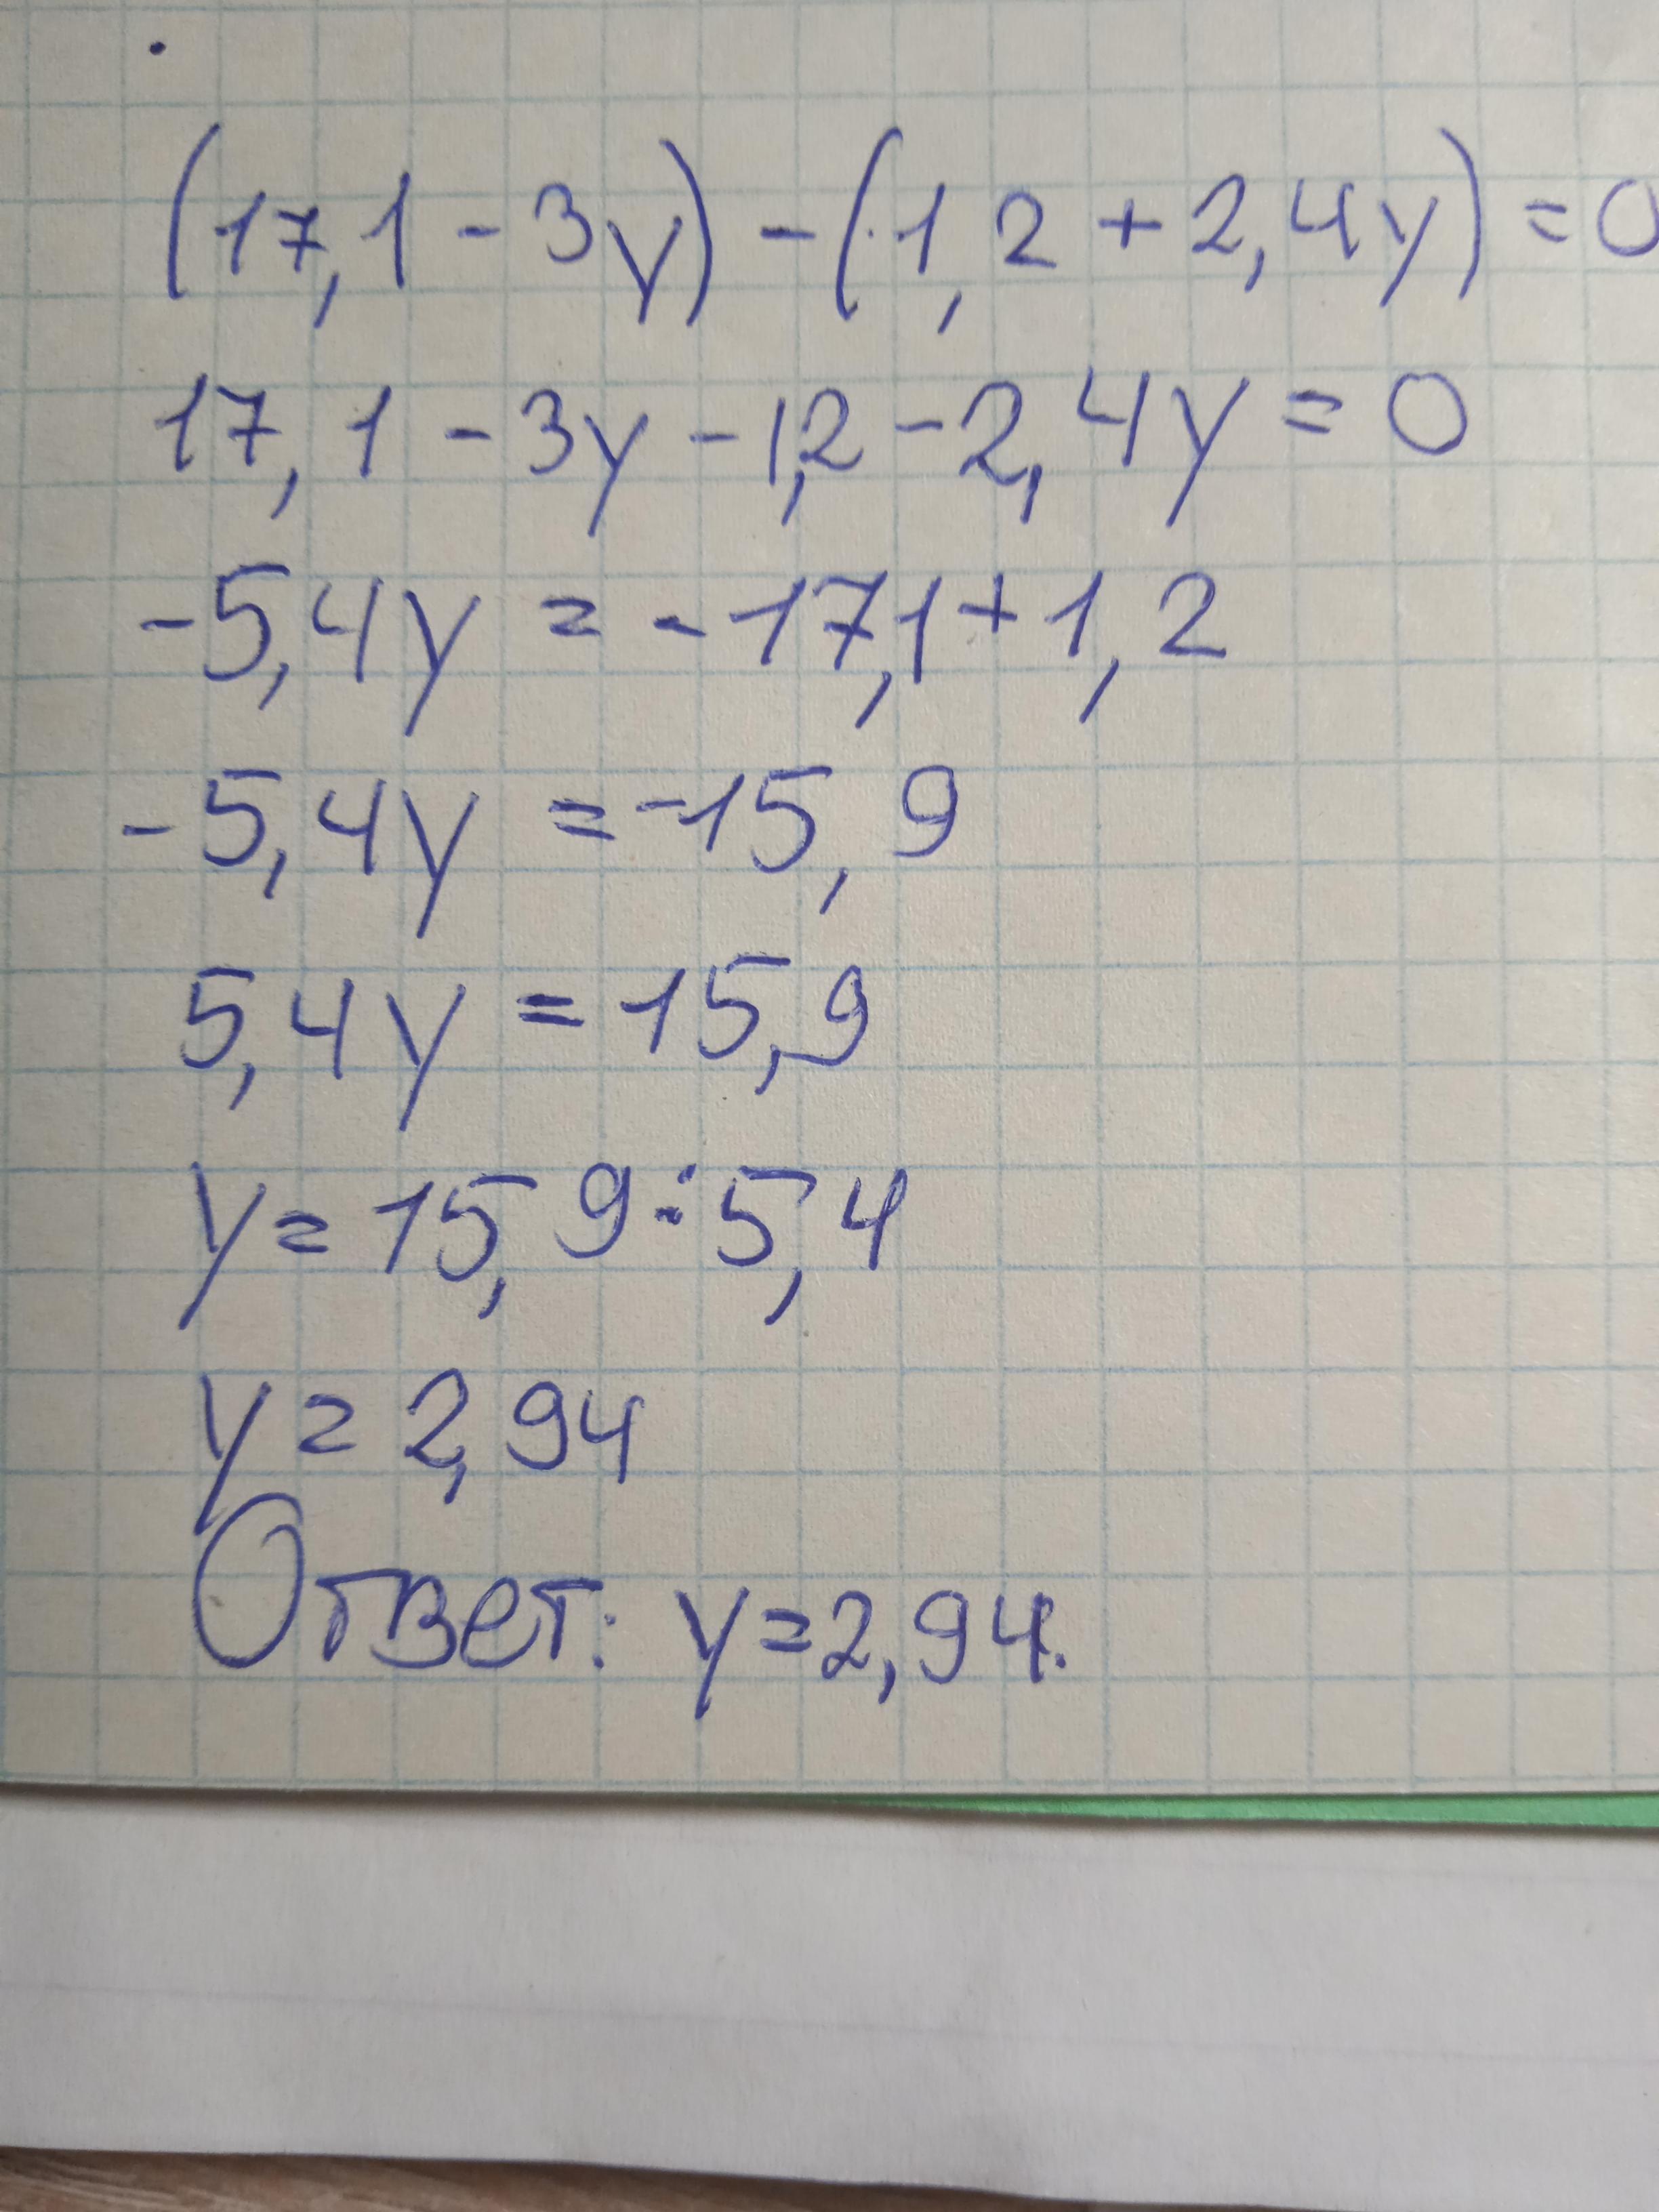 (17,1 - 3y) - (1,2 + 2,4y) = 0
17,1 - 3y - 1,2 - 2,4y = 0
-5,4y = -17,1 + 1,2
-5,4y = -15,9
5,4y = 15,9
y = 15,9 : 5,4
y = 2,94
Ответ: y = 2,94.